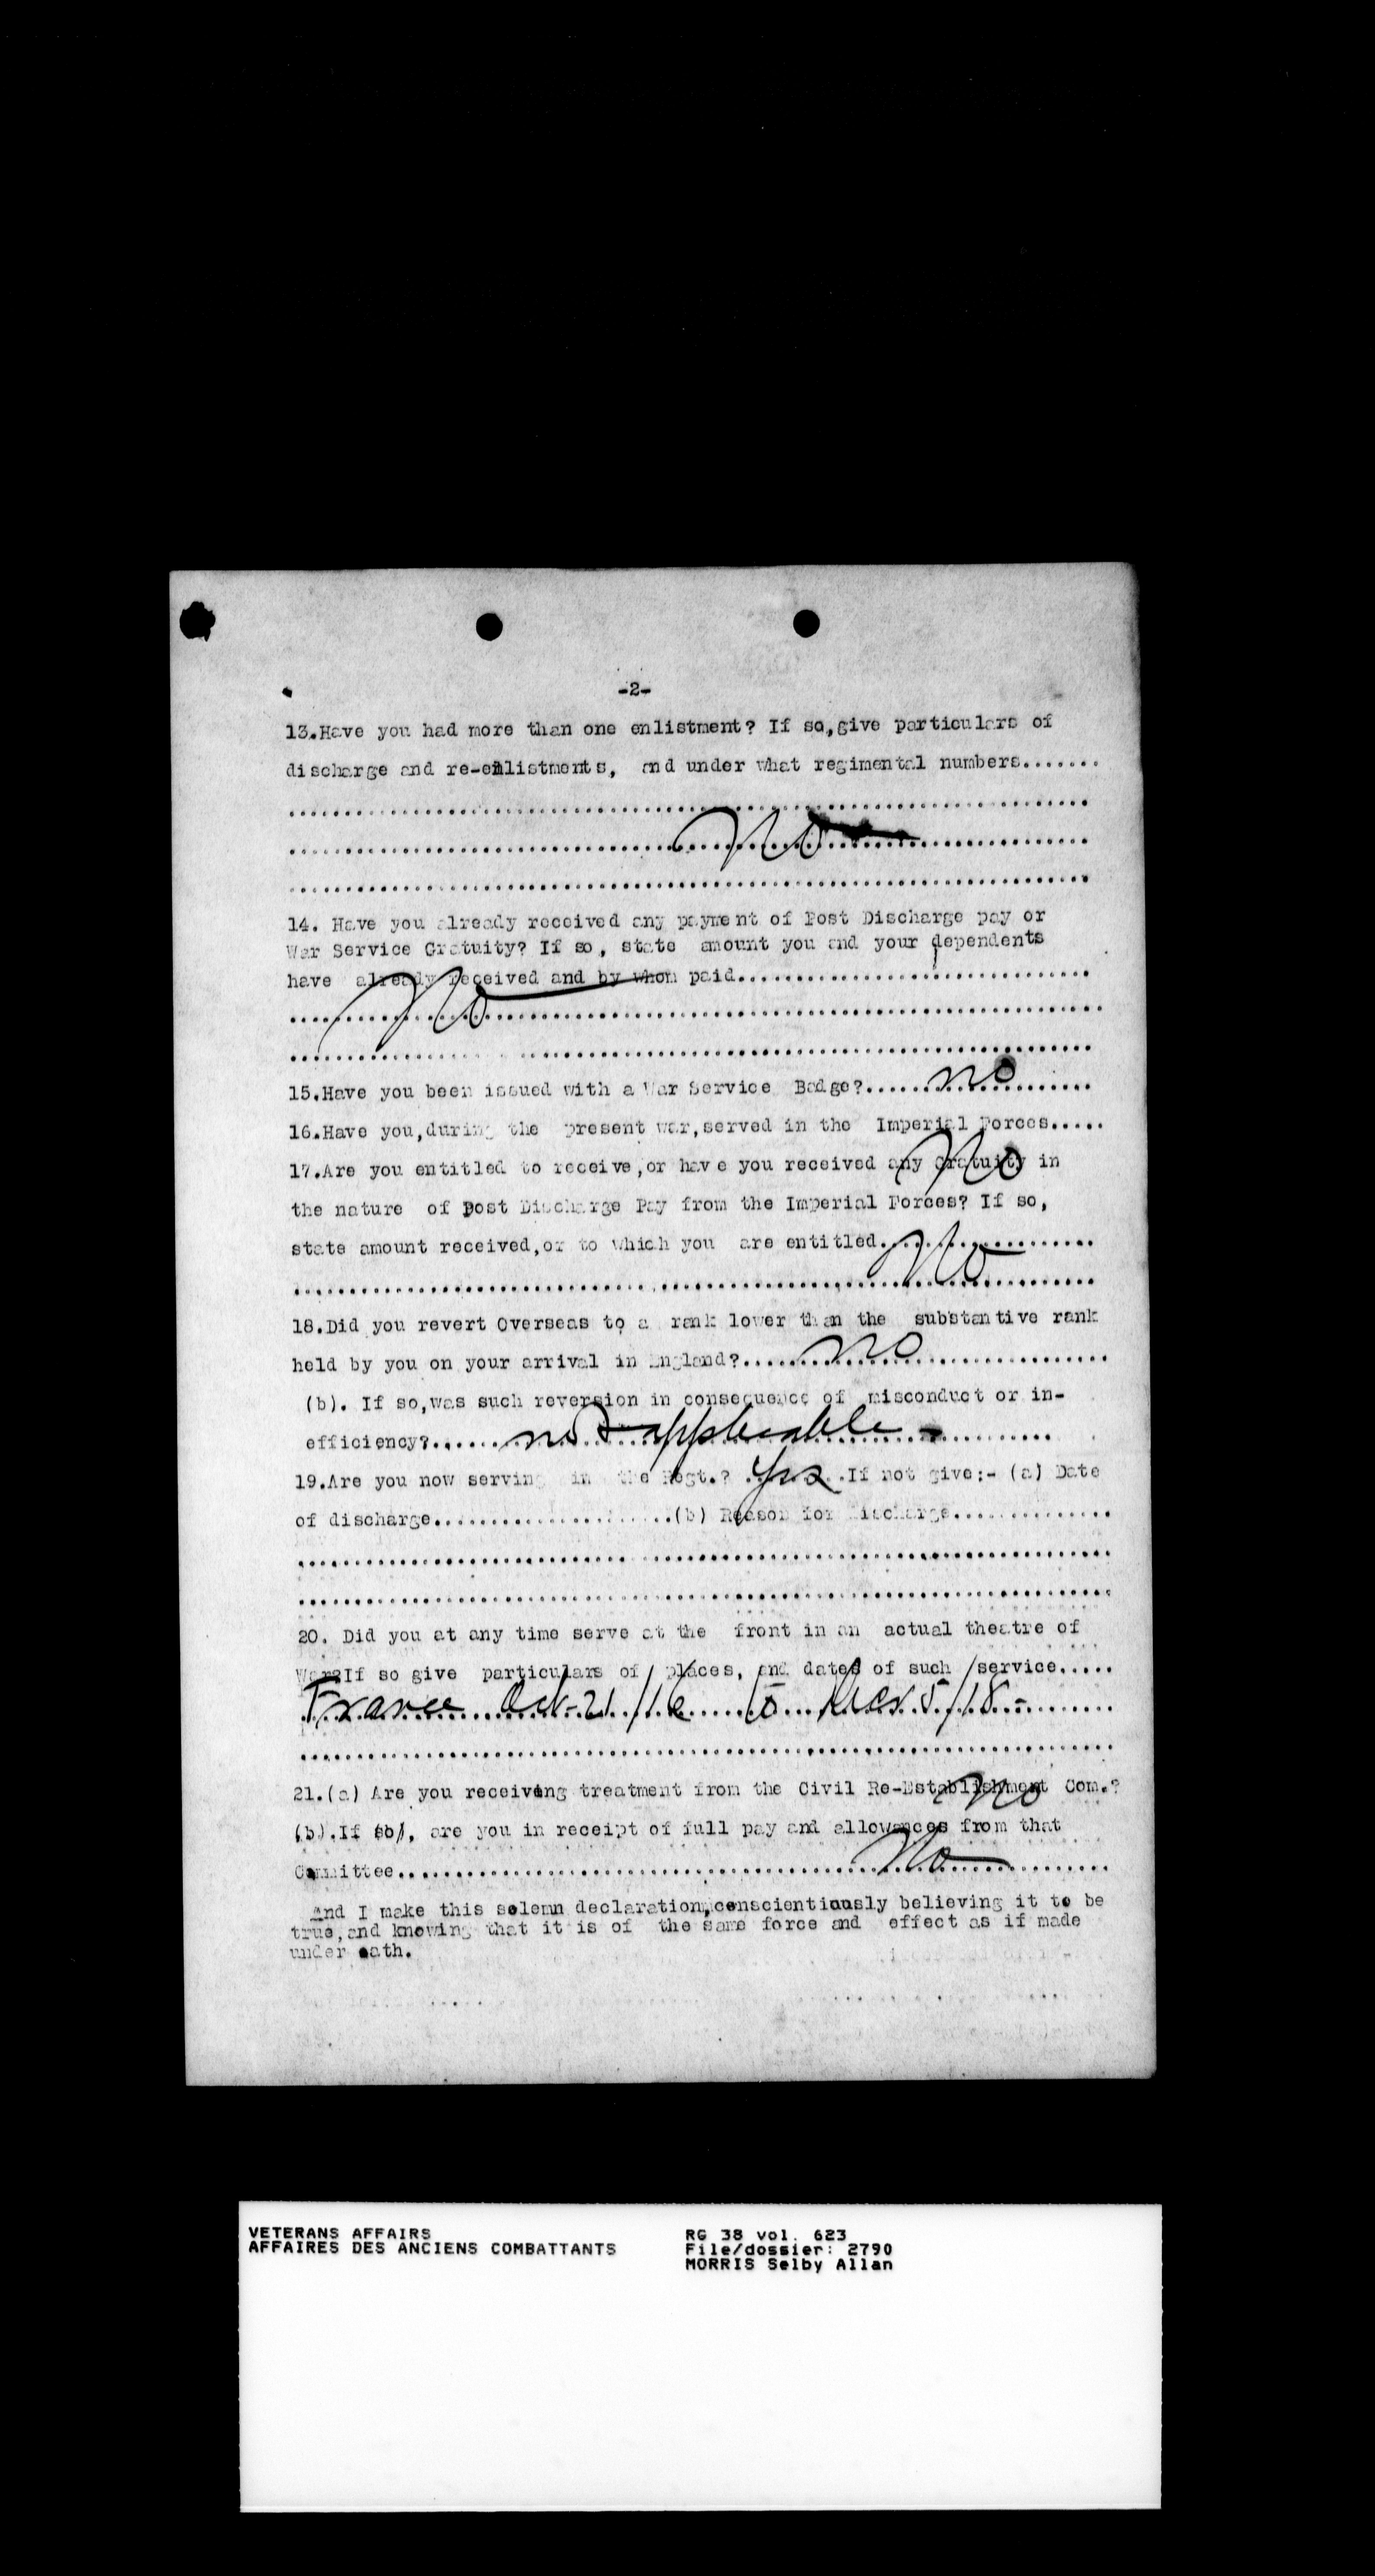 -2-
13.Have you had more than one enlistment? If so,give particulars of
discharge and re-enlistments, and under what regimental numbers.......
No
14. Have you already received any payment of Post Discharge pay or
War Service Gratuity? If so, state amount you and your dependents
have already received and by whom paid..............................
No
15.Have you been issued with a War Service Badge?.....no.....
16.Have you,during the present war,served in the Imperial Forces.....
No
17.Are you entitled to receive,or have you received any Gratuity in
the nature of post Discharge Pay from the Imperial Forces? If so,
state amount received,or to which you are entitled....................
No
18.Did you revert Overseas to a rank lower than the substantive rank
held by you on your arrival in England?.....no.....
(b). If so,was such reversion in consequence of misconduct or in-
efficiency?......not applicable -......
19.Are you now serving in the Regt.? .Yes..If not give:- (a) Date
of discharge......................(b) Reason for discharge...............
20. Did you at any time serve at the front in an actual theatre of
War?If so give particulars of places, and dates of such service.....
France Oct-21/16 to 5/18-
21.(a) Are you receiving treatment from the Civil Re-Establishment Com.?
No
(b).If so, are you in receipt of full pay and allowances from that
Committee..........No..........
And I make this solemn declaration,conscientiously believing it to be
true,and knowing that it is of the same force and effect as if made
under oath.
VETERANS AFFAIRS
AFFAIRES DES ANCIENS COMBATTANTS
RG 38 vol. 623
File/dossier: 2790
MORRIS Selby Allan